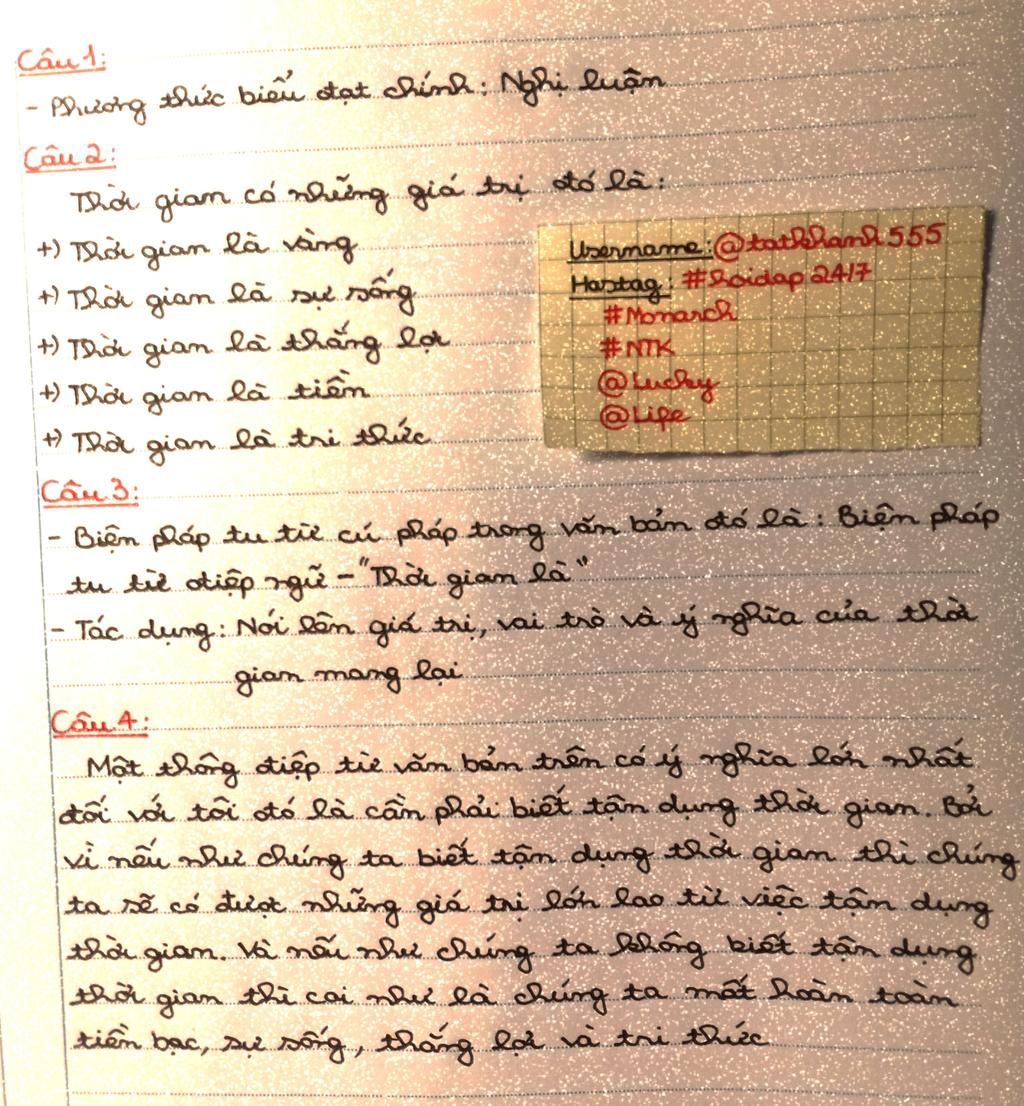 Câu 1:
- Phương thức biểu đạt chính: Nghị luận
Câu 2:
Thời gian có những giá trị đó là:
+) Thời gian là vàng
+) Thời gian là sự sống
+) Thời gian là thắng lợi
+) Thời gian là tiền
+) Thời gian là tri thức
Username: @tathhanh555
Hastag: #hoidap247
#Monarch
#NTK
@Lucky
@Life
Câu 3:
- Biện pháp tu từ cú pháp trong văn bản đó là: Biện pháp
tu từ điệp ngữ - "Thời gian là"
- Tác dụng: Nói lên giá trị, vai trò và ý nghĩa của thời
gian mang lại
Câu 4:
Một thông điệp từ văn bản trên có ý nghĩa lớn nhất
đối với tôi đó là cần phải biết tận dụng thời gian. Bởi
vì nếu như chúng ta biết tận dụng thời gian thì chúng
ta sẽ có được những giá trị lớn lao từ việc tận dụng
thời gian. Và nếu như chúng ta không biết tận dụng
thời gian thì coi như là chúng ta mất hoàn toàn
tiền bạc, sự sống, thắng lợi và tri thức